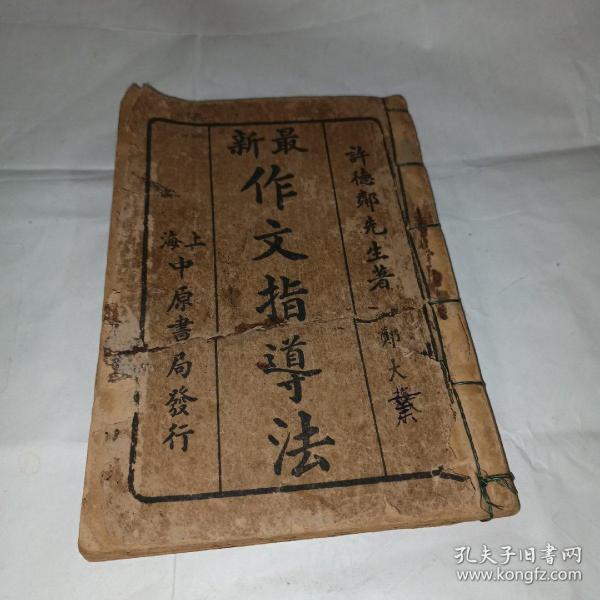 許德鄰先生著
鄭大
最新
作文指導法
上海
中原書局發行
孔夫子旧书网
www.kongfz.com